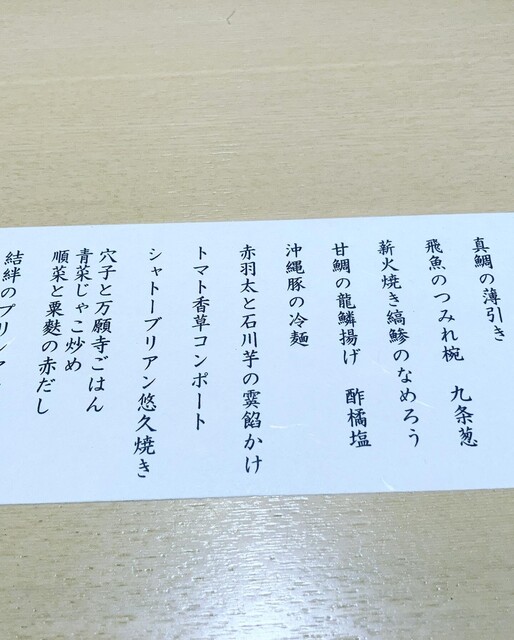 真鯛の薄引き
飛魚のつみれ椀 九条葱
薪火焼き縞鯵のなめろう
甘鯛の龍鱗揚げ 酢橘塩
沖縄豚の冷麺
赤羽太と石川芋の霙餡かけ
トマト香草コンポート
シャトーブリアン悠久焼き
穴子と万願寺ごはん
青菜じゃこ炒め
順菜と粟麩の赤だし
結絆のプリン